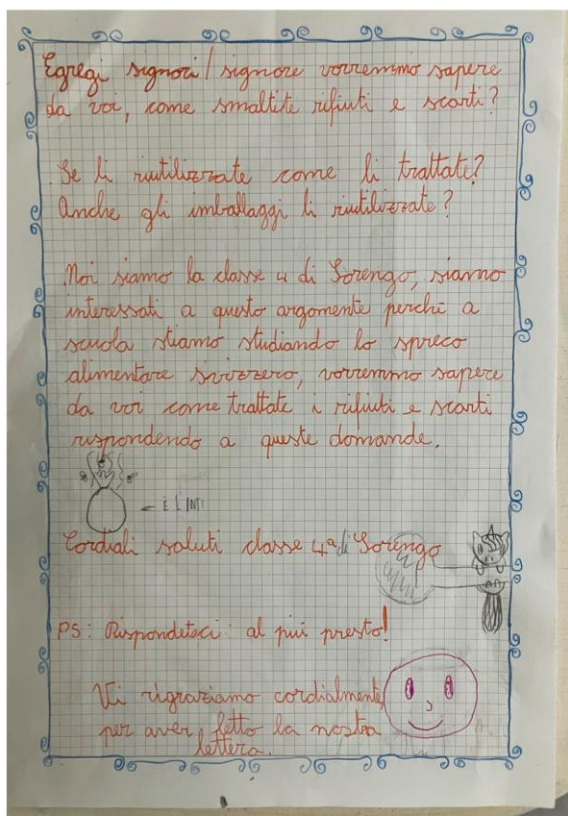 Egregi signori/signore vorremmo sapere
da voi, come smaltite rifiuti e scarti?
Se li riutilizzate come li trattate?
Anche gli imballaggi li riutilizzate?
Noi siamo la classe 4 di Sorengo, siamo
interessati a questo argomente perchè a
scuola stiamo studiando lo spreco
alimentare svizzero, vorremmo sapere
da voi come trattate i rifiuti e scarti
rispondendo a queste domande.
Cordiali saluti classe 4ª di Sorengo
PS: Rispondeteci al più presto!
Vi rigraziamo cordialmente
per aver letto la nostra
lettera.